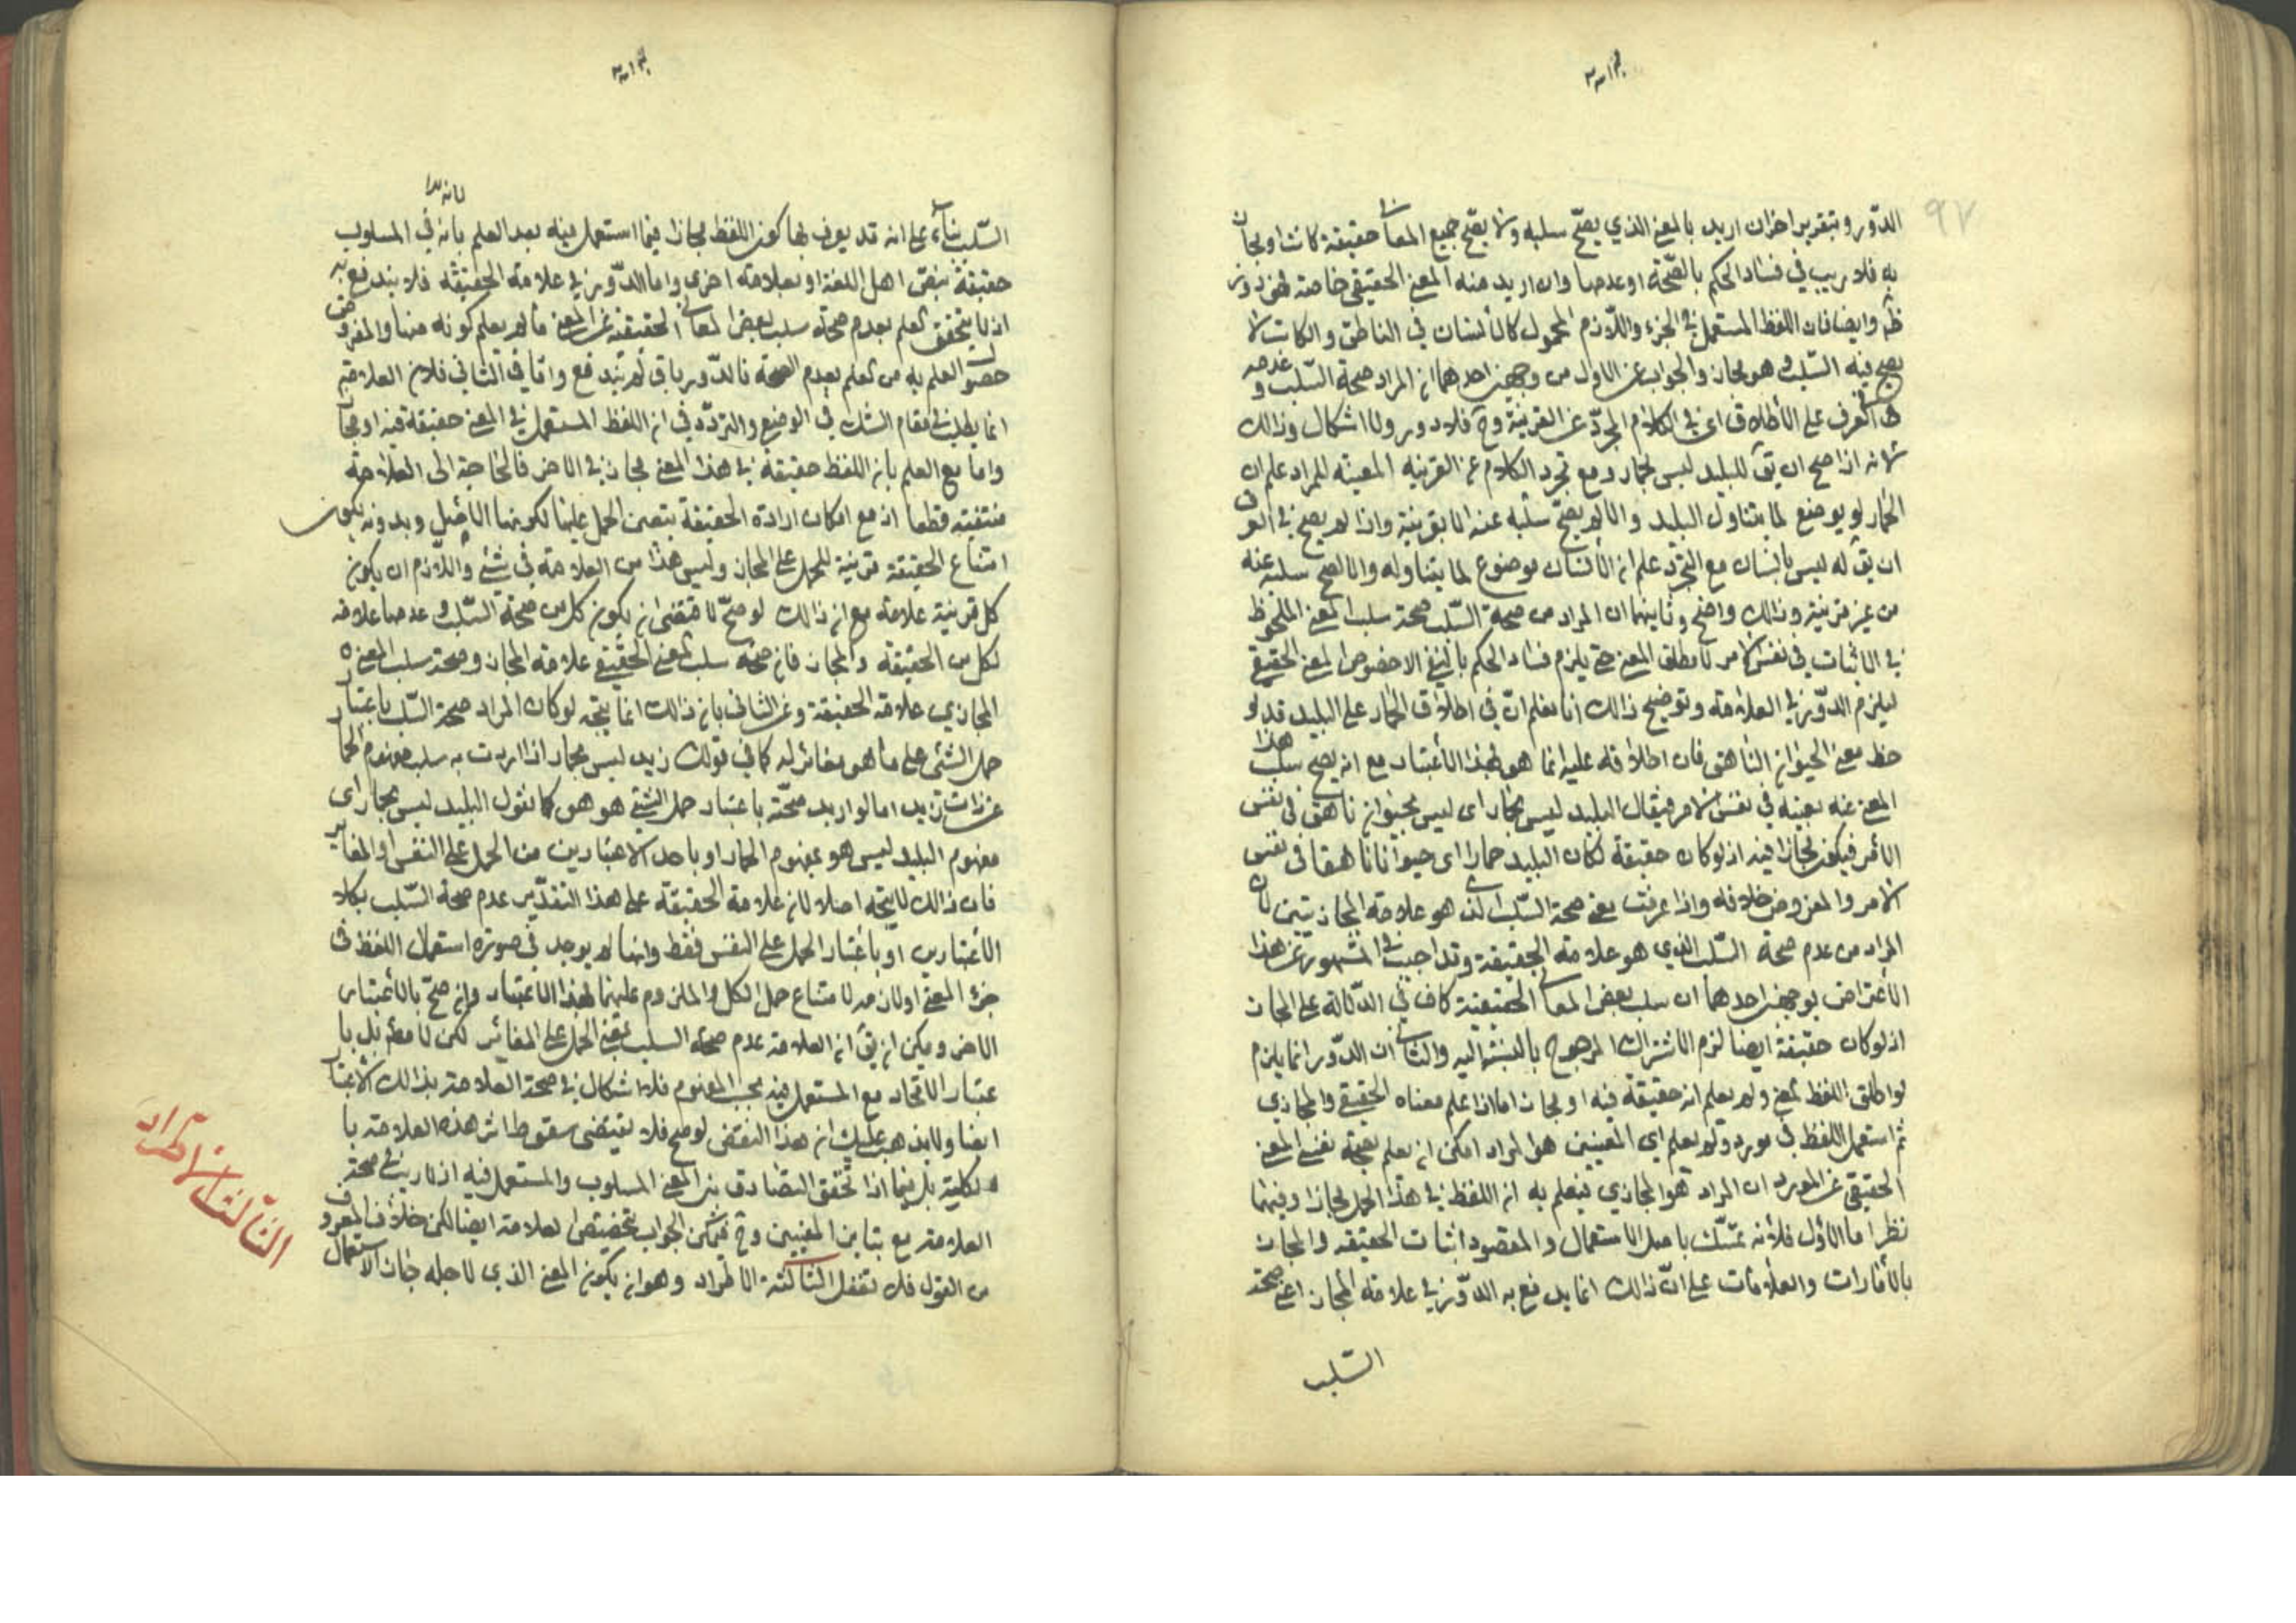 ٩٧
الدّور وبتقرير اخر ان اريد بالمعنى الذي يصحّ سلبه ولا يصحّ جميع المعانى حقيقية كانت او مجازيه
فلا ريب في فساد الحكم بالصّحة او عدمها وان اريد منه المعنى الحقيقي خاصة لزم الدور
ظم وايضا فان اللفظ المستعمل في الجزء واللّازم المحمول كالانسان في الناطق والكاتب لا
يصح فيه السّلب وهو مجاز والجواب عن الاول من وجهين احدهما ان المراد صحة السّلب وعدمه
في العرف على الاطلاق اى في الكلام المجرّد عن القرينة وح فلا دور ولا اشكال وذالك
لانه اذا صح ان يق للبليد ليس بحمار مع تجرد الكلام عن القرينه المعينه للمراد علم ان
الحمار لم يوضع لما يتناول البليد والا لم يصحّ سلبه عنه الا بقرينة واذا لم يصح في العرف
ان يق له ليس بانسان مع التجرّد علم ان الانسان موضوع لما يتناوله والا لصح سلبه عنه
من غير قرينة وذالك واضح وثانيهما ان المراد من صحة السّلب صحة سلب المعنى الملحوظ
في الاثبات في نفس الامر لا مطلق المعنى حتى يلزم فساد الحكم بالنفي ولا خصوص المعنى الحقيقي
ليلزم الدّور في العلامة وتوضيح ذالك انا نعلم انّ في اطلاق الحمار على البليد قد لو
حظ معنى الحيوان الناهق فان اطلاقه عليه انما هو بهذا الاعتبار مع انه يصح سلب هذا
المعنى عنه بعينه في نفس الامر فيقال البليد ليس بحمار اى ليس بحيوان ناهق في نفس
الامر فيكون مجازا فيه اذ لو كان حقيقة لكان البليد حمارا اى حيوانا ناهقا في نفس
الامر والمفروض خلافه واذا عرفت معنى صحة السّلب الذى هو علامة المجاز تبين لك
المراد من عدم صحة السّلب الذي هو علامة الحقيقة وقد اجيب في المشهور عن هذا
الاعتراض بوجهين احدهما ان سلب بعض المعانى الحقيقية كاف في الدّلالة على المجاز
اذ لو كان حقيقة ايضا لزم الاشتراك المرجوح بالنسبة اليه والثاني ان الدّور انما يلزم
لو اطلق اللفظ لمعنى ولم يعلم انه حقيقة فيه او مجاز اما اذا علم معناه الحقيقي والمجازي
ثم استعمل اللفظ في مورد ولم يعلم اى المعنيين هو المراد امكن ان يعلم بصحة نفى المعنى
الحقيقي عن المورد ان المراد هو المجازي فيعلم به ان اللفظ في هذا المحل مجازا وفيهما
نظر اما الاول فلانه تمسّك باصل الاستعمال والمقصود اثبات الحقيقه والمجاز
بالأمارات والعلامات على انّ ذالك انما يدفع به الدّور في علامة المجاز اعنى صحة
السّلب
السّلب بناء على انه قد يعرف بها كون اللفظ مجازا فيما استعمل فيه بعد العلم بانه في المسلوب
حقيقة بنصّ اهل اللغة او بعلامة اخرى واما الدّور في علامة الحقيقة فلا يندفع به
اذ لا يتحقق العلم بعدم صحة سلب بعض المعاني الحقيقية عن المعنى ما لم يعلم كونه منها والمفروض
حصول العلم به من العلم بعدم الصحة فالدّور باق لم يندفع واما في الثاني فلان العلامة
انما يطلب في مقام الشك في الوضع والتردّد في ان اللفظ المستعمل في المعنى حقيقة فيه او مجاز
واما مع العلم بان اللفظ حقيقة في هذا المعنى مجاز في الاخر فالحاجة الى العلامة
منتفية قطعا اذ مع امكان ارادة الحقيقة يتعين الحمل عليها لكونها الاصل وبدونه يكون
امتناع الحقيقة قرينة للحمل على المجاز وليس هذا من العلامة في شئ واللّازم ان يكون
كل قرينة علامة مع ان ذالك لو صحّ لاقتضى ان يكون كل من صحة السّلب وعدمها علامة
لكل من الحقيقة والمجاز فان صحة سلب المعنى الحقيقي علامة المجاز وصحة سلب المعنى
المجازي علامة الحقيقة وعن الثاني بان ذالك انما يتجه لو كان المراد صحة السّلب باعتبار
حمل الشئ على ما هو مغائر له كما في قولك زيد ليس بحمار اذا اردت به سلب مفهوم الحمار
عن ذات زيد اما لو اريد صحّته باعتبار حمل الشئ هو هو كما نقول البليد ليس بحمار اى
مفهوم البليد ليس هو بمفهوم الحمار او باحد الاعتبارين من الحمل على النفس او المغاير
فان ذالك لا يتجه اصلا لان علامة الحقيقة على هذا التقدير عدم صحة السّلب بكلا
الاعتبارين او باعتبار الحمل على النفس فقط وانها لم يوجد في صورة استعمال اللفظ في
جزء المعنى او لازمه لامتناع حمل الكل والملزوم عليهما بهذا الاعتبار وان صحّ بالاعتبار
الاخر ويمكن ان يق ان العلامة عدم صحة السلب بمعنى الحمل على المغائر لكن لا مطم بل با
عتبار الاتحاد مع المستعمل فيه بحسب المفهوم فلا اشكال في صحة العلامة بذالك الاعتبار
ايضا ولا يذهب عليك ان هذا النقض لو صح فلا يقتضى سقوط اثر هذه العلامة با
لكلية بل فيما اذا تحقق التصادق بين المعنى المسلوب والمستعمل فيه اذ لا ريب في صحة
العلامة مع تباين المعنيين وح فيمكن الجواب بتخصيص العلامة ايضا لكن خلاف المعروف
من القول فلا تغفل الثالثة الاطّراد وهو ان يكون المعنى الذي لاجله جاز الاستعمال
الثالث الاطراد